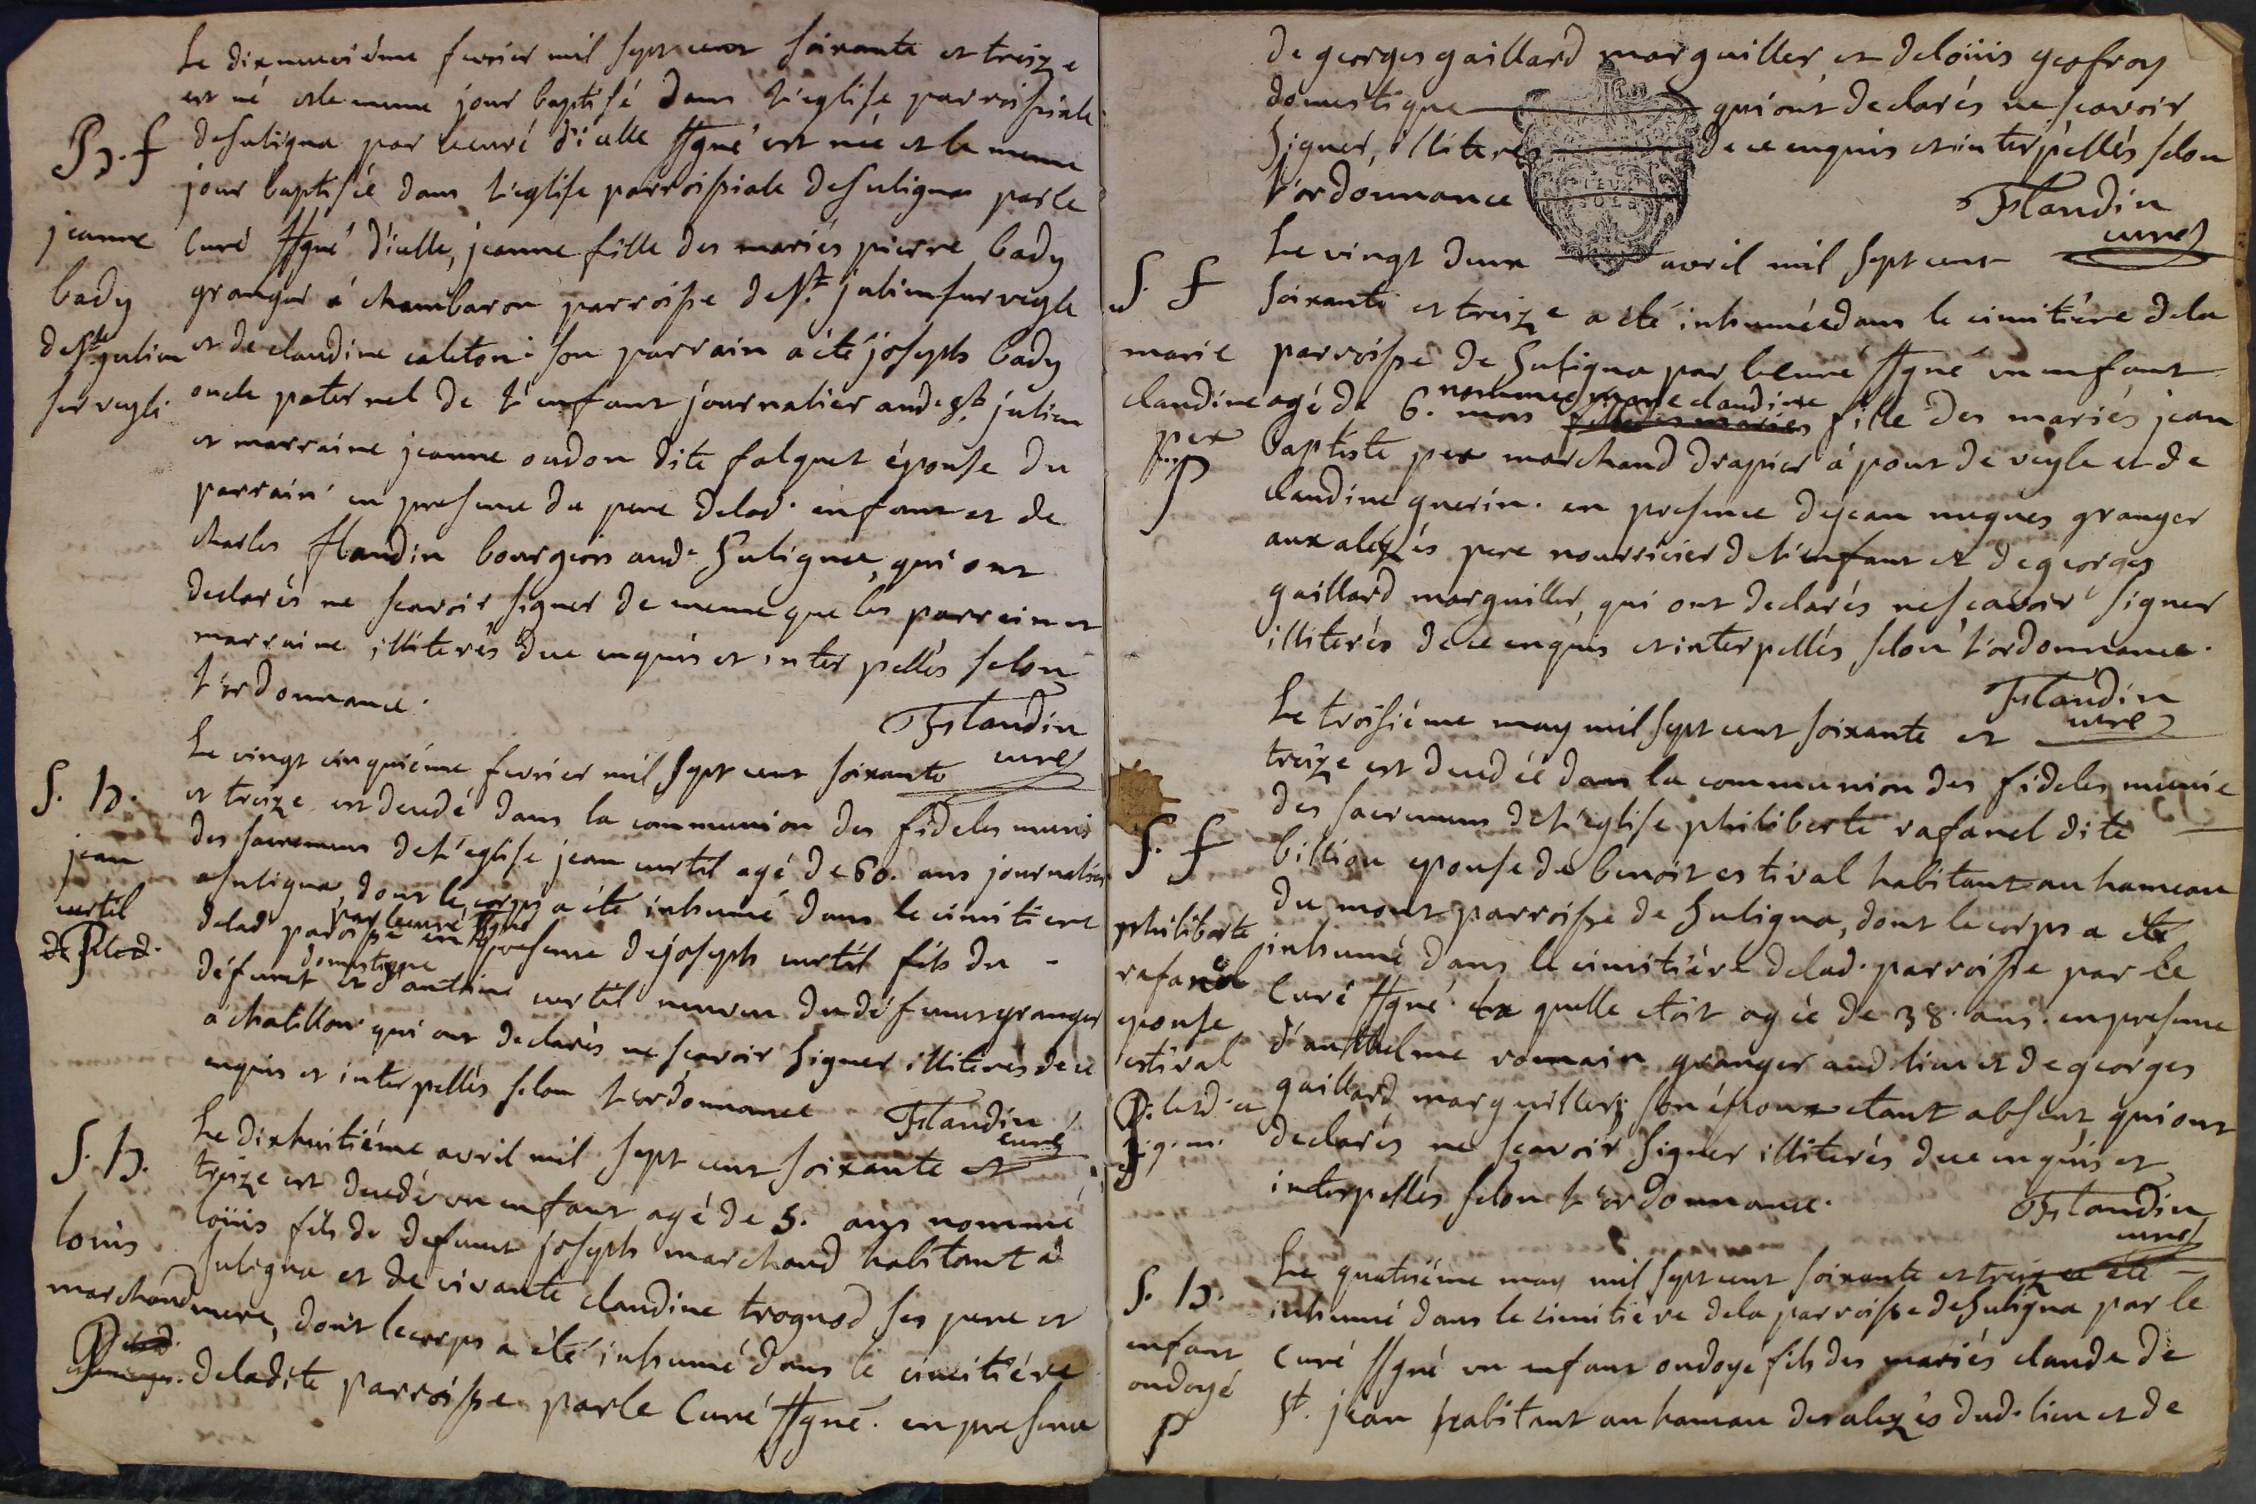 Le dixneuviéme fevrier mil sept cent soixante et treize
est né et le meme jour baptisé dans l'eglise parroissiale
de Suligna par le curé d'icelle ssgné est née et le meme
jour baptisée dans l'eglise parroissiale de Suligna par le
curé ssgné d'icelle, jeanne fille des mariés pierre bady
granger á chambaron parroisse de St. julien sur veyle
et de claudine caleton. son parrain a été joseph bady
oncle paternel de l'enfant journalier aud. St. julien
et marraine jeanne oudon dite falquet épouse du
parrain en presence du pere de lad. enfant et de
charles flandin bourgeois aud. Suligna, qui ont
declarés ne scavoir signer de meme que les parrein et
marraine illiterés de ce enquis et interpellés selon
l'ordonnance.
Flandin
curé
B. f
jeanne
bady
de St. julien
sur veyle
Le vingt cinquiéme fevrier mil sept cent soixante
et treize est decedé dans la communion des fideles muni
des sacremens de l'eglise jean curtil agé de 60. ans journalier
a suligna, dont le corps a été inhumé dans le cimitiere
par le curé ssgné
delad. paroisse en presence de joseph curtil fils du
domestique
défunt et d'antoine curtil neveu du défunt granger
a chatillon qui ont declarés ne scavoir signer illiterés de ce
enquis et interpellés selon l'ordonnance
Flandin
curé
S. h.
jean
curtil
Le dixhuitiéme avril mil sept cent soixante et
treize est decedé un enfant agé de 5. ans nommé
loüis fils de defunt joseph marchand habitant á
suligna et de vivante claudine troquod ses pere et
mere, dont le corps a été inhumé dans le cimitiére
deladite parroisse par le curé ssgné. en presence
S. h.
louis
marchand
de georges gaillard marguiller, et de loüis geofroy
domestique qui ont declarés ne scavoir
signer, illiterés de ce enquis et interpellés selon
l'ordonnance
Flandin
curé
Le vingt deux avril mil sept cent
soixante et treize a été inhumée dans le cimitiére dela
parroisse de Suligna par le curé ssgné un enfant
nommée marie claudine
agé de 6. mois fille des mariés fille des mariés jean
baptiste pex marchand drapier á pont de veyle et de
claudine guerin. en presence de jean nugues granger
aux alezés pere nourricier de l'enfant et de georges
gaillard marguiller, qui ont declarés ne scavoir signer
illiterés de ce enquis et interpellés selon l'ordonnance.
Flandin
curé
S. f
marie
claudine
pex
p
Le troisiéme may mil sept cent soixante et
treize est decedée dans la communion des fideles munie
des sacremens de l'eglise philiberte rafanel dite
billion epouse de benoit estival habitant au hameau
du mont parroisse de Suligna, dont le corps a été
inhumé dans le cimitiére delad. parroisse par le
curé ssgné. la quelle etoit agée de 38. ans. en presence
d'anthelme romain granger aud. lieu et de georges
gaillard marguiller; son époux etant absent qui ont
declarés ne scavoir signer illiterés de ce enquis et
interpellés selon l'ordonnance.
Flandin
curé
S. f
philiberte
rafanel
epouse
estival
Le quatriéme may mil sept cent soixante et treize a été
inhumé dans le cimitiere dela parroisse de Suligna par le
curé ssgné un enfant ondoyé fils des mariés claude de
St. jean habitant au hameau des alezés dud. lieu et de
S. h.
enfant
ondoyé
p